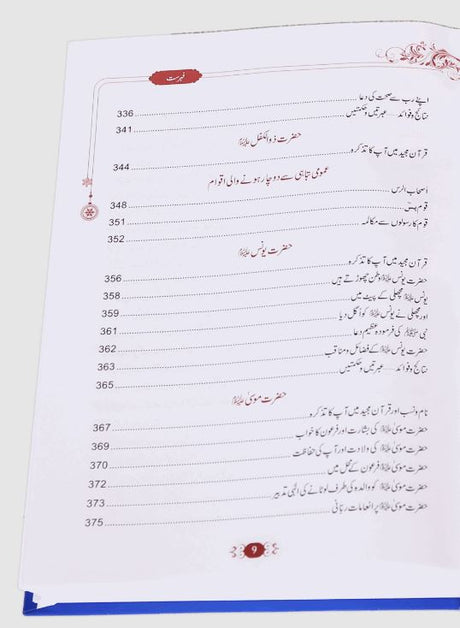 فہرست
اپنے رب سے صحت کی دعا ... 336
نتائج و فوائد ... عبرتیں و حکمتیں ... 341
حضرت ذوالکفل علیہ السلام
قرآن مجید میں آپ کا تذکرہ ... 344
عمومی تباہی سے دوچار ہونے والی اقوام
اصحاب الرس ... 348
قوم یٰسٓ ... 351
قوم کا رسولوں سے مکالمہ ... 352
حضرت یونس علیہ السلام
قرآن مجید میں آپ کا تذکرہ ... 356
حضرت یونس علیہ السلام وطن چھوڑتے ہیں ... 358
یونس علیہ السلام مچھلی کے پیٹ میں ... 359
اور مچھلی نے یونس علیہ السلام کو اگل دیا ... 361
نبی ﷺ کی فرمودہ عظیم دعا ... 362
حضرت یونس علیہ السلام کے فضائل و مناقب ... 363
نتائج و فوائد ... عبرتیں و حکمتیں ... 365
حضرت موسیٰ علیہ السلام
نام و نسب اور قرآن مجید میں آپ کا تذکرہ ... 367
حضرت موسیٰ علیہ السلام کی بشارت اور فرعون کا خواب ... 369
حضرت موسیٰ علیہ السلام کی ولادت اور آپ کی حفاظت ... 370
حضرت موسیٰ علیہ السلام فرعون کے محل میں ... 372
حضرت موسیٰ علیہ السلام کو والدہ کی طرف لوٹانے کی الٰہی تدبیر ... 373
حضرت موسیٰ علیہ السلام پر انعامات ربانی ... 375
9